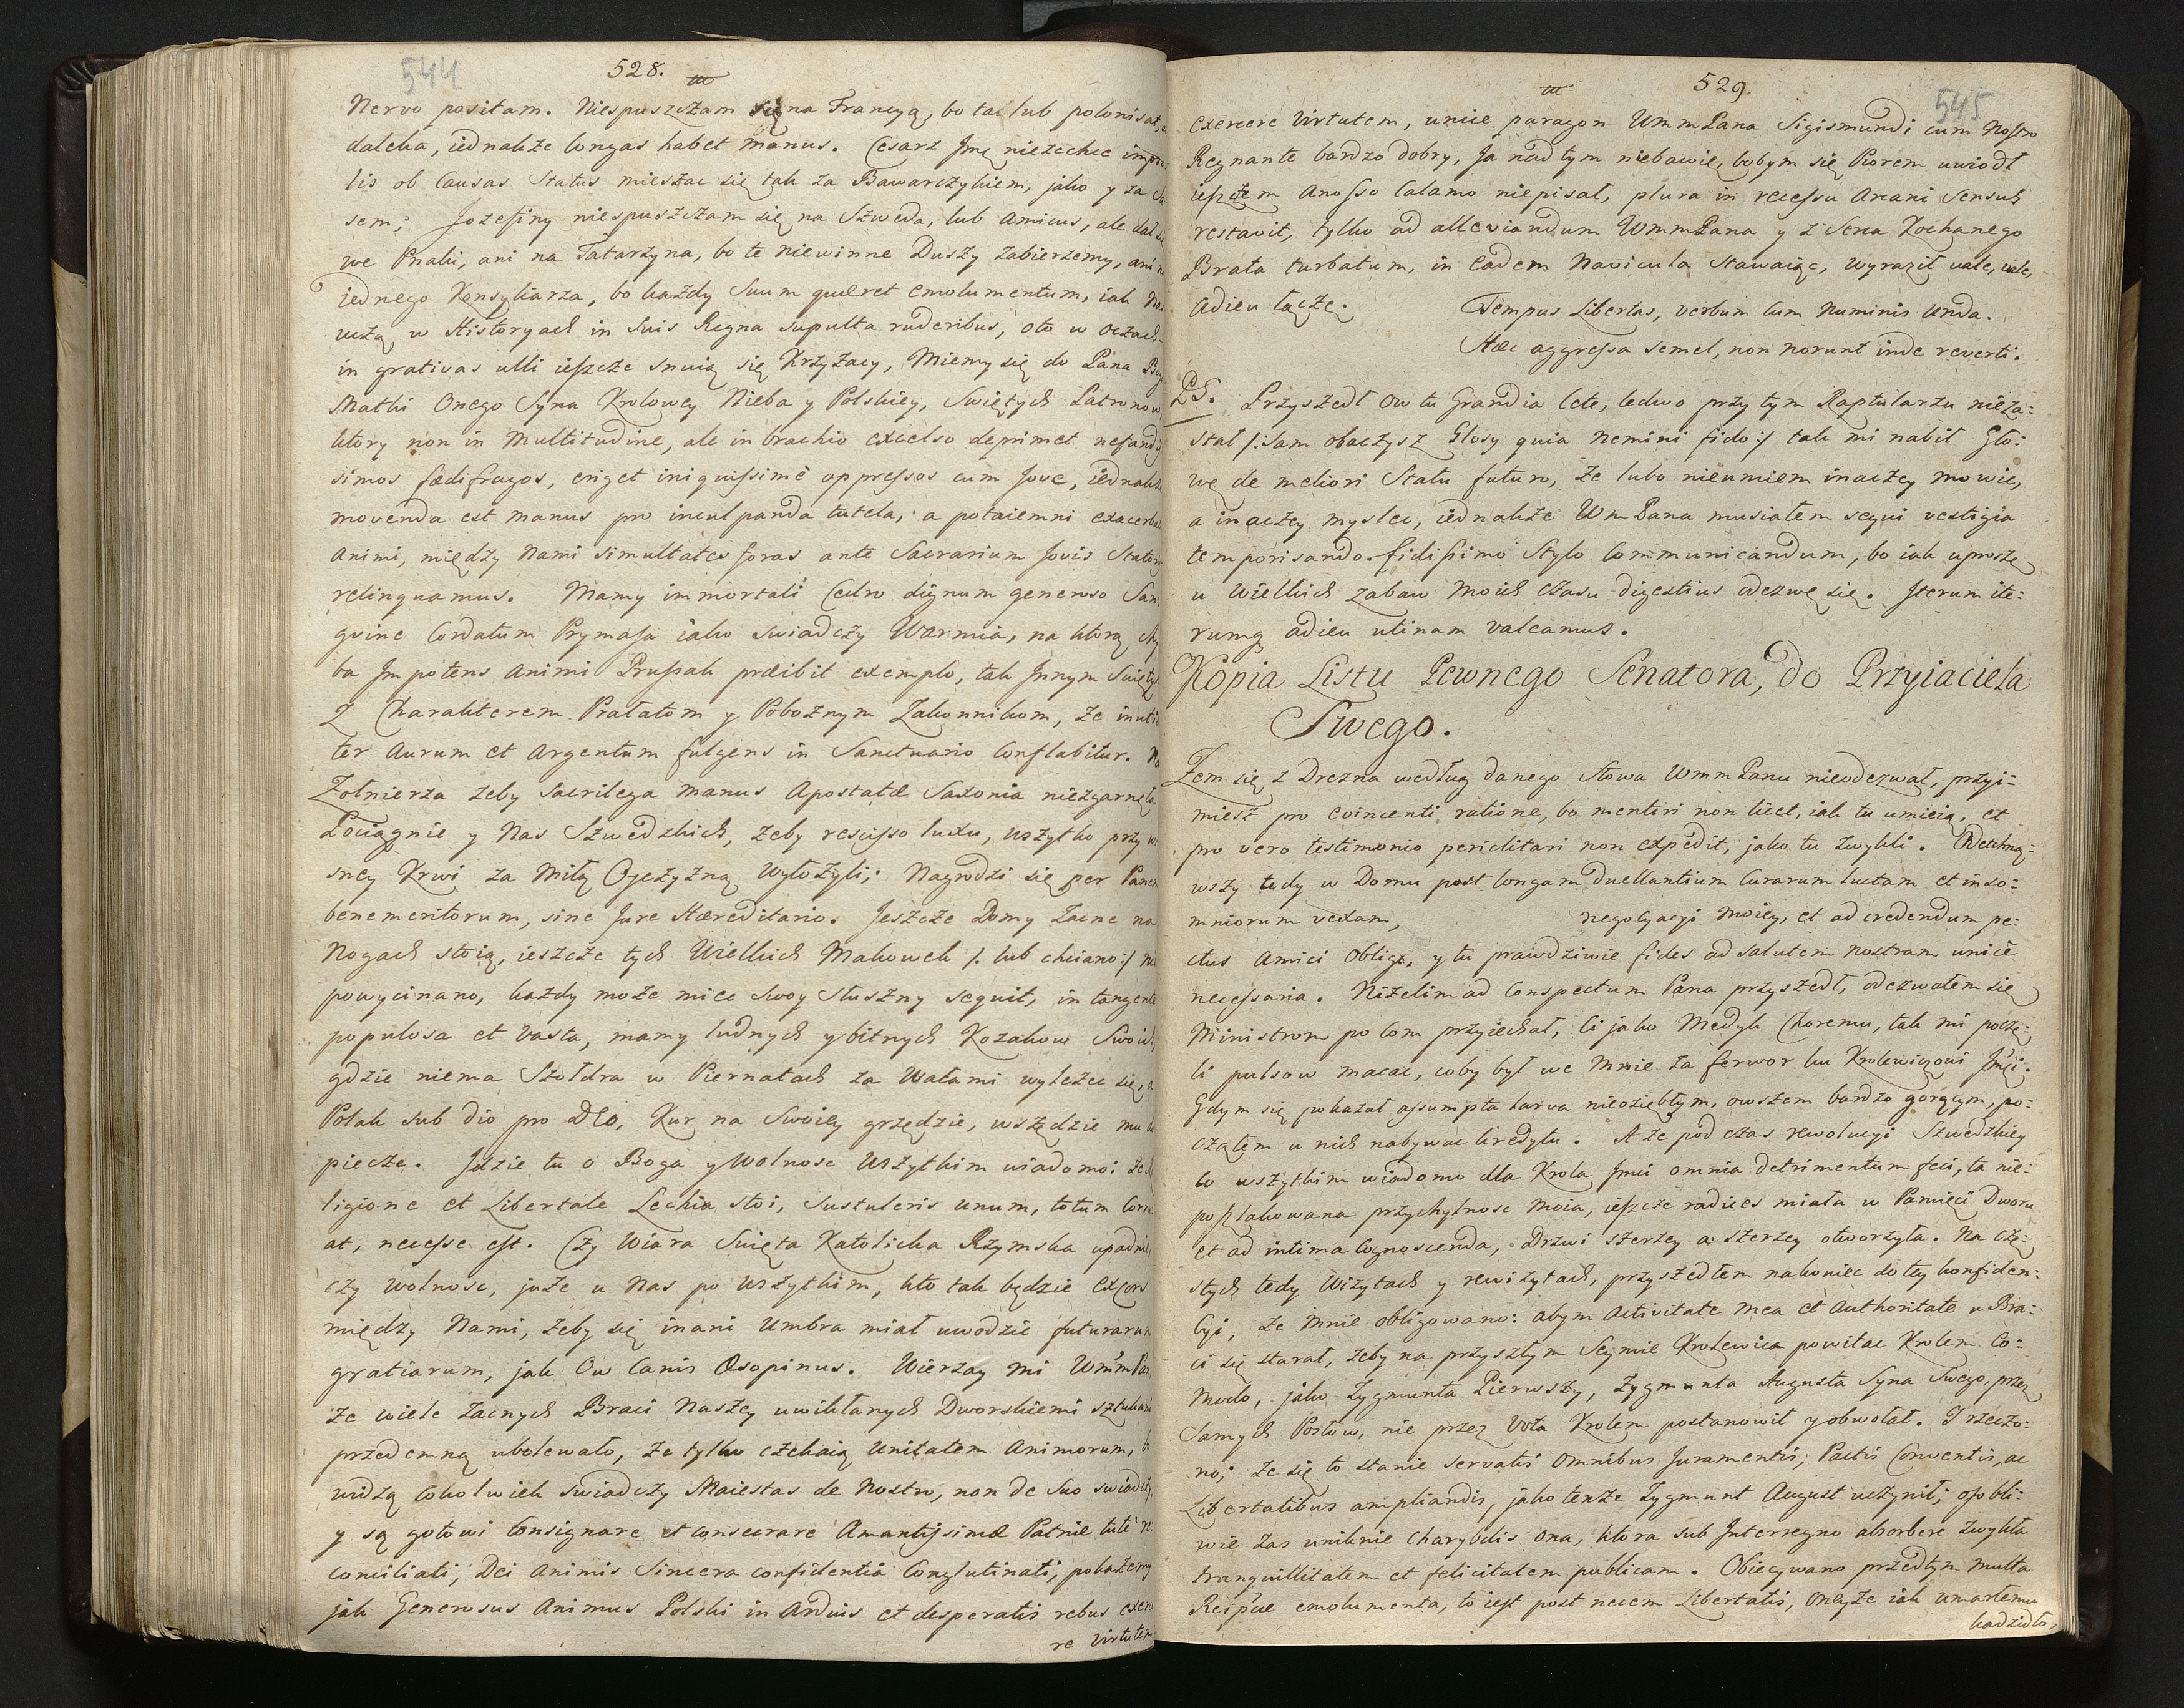 544
528.
Nervo positam. Niespuszczam się na Francyą, bo tac lub polonisat,
daleka, iednakże longas habet manus. Cesarz Jmę niezechce
lis ob Causas Status mieszac się tak za Bawarczykiem, jako y za
sem; Jozefiny niespuszczam się na Szweda, lub Amicus, ale
we Pnaki, ani na Tatarzyna, bo te niewinne Duszy zabierzemy, ani
iednego Konsyliarza, bo każdy Suum quæret emolumentum, iak
uczą w Historyach in Suis Regna sepulta ruderibus, oto w oczach
in grativas ulli ieszcze snuią się Krzyżacy, Miemy się do Pana
Matki Onego Syna Krolowey Nieba y Polskiey, Swiętych Patronow
ktory non in Multitudine, ale in brachio excelso deprimet
simos fœdifragos, eriget iniquissimè oppressos cum Jove, iednakże
movenda est manus pro inculpanda tutela, a potaiemni
animi, między Nami simultates foras ante Sacrarium Jovis
relinquamus. Mamy immortali Cedro dignum generoso San
guine Cordatum Prymasa iako swiadczy Warmia, na ktorą
ba Impotens animi Prussak præibit exemplo, tak Innym
Z Charakterem Prałatom y Pobożnym Zakonnikom, że
ter Aurum et argentum fulgens in Sanctuario Conflabitur.
Zołnierza żeby Sacrilega manus Apostatæ Saxonia niezgarnęła
Pociągnie y Nas Szwedzkich, żeby rescisso luxu, wszytko przy
sney Krwi za Miłą Oyczyznę wyłożyli; Nagrodzi się per
benemeritorum, sine Jure Hæreditario. Jeszcze Domy Zacne na
Nogach stoią, ieszcze tych Wielkich Makowek /: lub chciano :/
powycinano, każdy może miec swoy słuszny sequit, in
populosa et vasta, mamy ludnych y bitnych Kozakow
gdzie niema Szołdra w Piernatach za Wałami wyleżec się,
Polak sub dio pro DEO, Kur na Swoiey grzędzie, wszędzie
piecze. Jdzie tu o Boga y Wolnosc Wszytkim wiadomo:
ligione et Libertate Lechia stoi, Sustuleris unum, totum
at, necesse est. Czy Wiara Swięta Katolicka Rzymska
czy wolnosc, juże u Nas po Wszytkim, kto tak będzie
między Nami, żeby się inani Umbra miał uwodzic futurarum
gratiarum, jak Ow Canis Æsopinus. Wierzay mi
że wiele Zacnych Braci Naszey uwikłanych Dworskiemi
przedemną ubolewało, że tylko czekaią Unitatem Animorum,
widzą cokolwiek swiadczy Maiestas de Nostro, non de Suo
y są gotowi Consignare et consecrare Amantissimæ Patriæ
conciliati; Dei Animis Sincera confidentiâ Conglutinati, pokażemy
jak Generosus Animus Polski in Arduis et desperatis rebus
re Virtutem

529.
545
exercere Virtutem, uniie paragon UmmPana Sigismundi cum Nostro
Regnante bardzo dobry, Ja nad tym niebawię, bobym się Piorem uwiodł
ieszczem Anosso Calamo niepisał, plura in recessu Arcani Sensus
restavit, tylko ad alleviandum UmmPana y z Serca Kochanego
Brata turbatum, in Eadem Navicula stawaiąc, wyraził vale, vale,
Adieu łączę. Tempus Libertas, verbum cum Numinis Unda.
Hæc aggressa semel, non norunt inde reverti.
PS. Przyszedł Ow tu Grandia lete, ledwo przy tym Raptularzu nieza:
stał /: Sam obaczysz Glosy quia Nemini fido :/ tak mi nabił Gło:
wę de meliori Statu futuro, że lubo nieumiem inaczey mowic,
a inaczey myslec, iednakże WmPana musiałem sequi vestigia
temporisando. fidissimo Stylo Communicandum, bo iak uproszę
u Wielkich zabaw moich czasu digestius odezwę się. Jterum ite:
rumq adieu utinam valeamus.
Kopia Listu Pewnego Senatora, do Przyiaciela
Swego.
Zem się z Drezna według danego słowa UmmPanu nieodezwał, przyi:
miesz pro evincenti ratione, bo mentiri non licet, iak tu umieią, et
pro vero testimonio periclitari non expedit, jako tu zwykli. Odetchną:
wszy tedy w Domu post longam Duellantium Curarum luctam et inso:
mniorum vexam, negocyacyi moiey, et ad credendum pe:
ctus Amici Obligo, y tu prawdziwie fides ad salutem nostram unicè
necessaria. Niżelim ad Conspectum Pana przyszedł, odezwałem się
Ministrom po com przyiechał, Ci jako Medyk Choremu, tak mi poczę:
li pulsow macac, coby był we Mnie za ferwor ku Krolewicowi Jmci.
Gdym się pokazał assumpta larva nieoziębłym, owszem bardzo gorącym, po:
cząłem u nich nabywac kredytu. A że pod czas rewolucyi Szwedzkiey
co wszytkim wiadomo dla Krola Jmci omnia detrimentum feci, ta nie:
poszlakowana przychylnosc moia, ieszcze radices miała w Pamięci Dworu
et ad intima Cognoscenda, Drzwi szerzey a szerzey otworzyła. Na czę:
stych tedy Wizytach y rewizytach, przyszedłem nakoniec do tey konfiden:
cyi, że Mnie obligowano: abym activitate mea et Authoritate u Bra:
ci się starał, żeby na przyszłym Seymie Krolewica powitac Krolem Co:
modo, jako Zygmunta Pierwszy, Zygmunta Augusta Syna Swego, przez
Samych Posłow, nie przez Vota Krolem postanowił y obwołał. I rzeczo:
no; że się to stanie servatis Omnibus Juramentis; Pactis Conventis, ac
Libertatibus ampliandis, jako tenże Zygmunt August uczynił; osobli:
wie zas uniknie Charybdis ona, ktora sub Interregno absorbere zwykła
tranquillitatem et felicitatem publicam. Obiecywano przedtym multa
Reipcæ emolumenta, to iest post necem Libertatis, oneyże iak umarłemu
kadzidło,